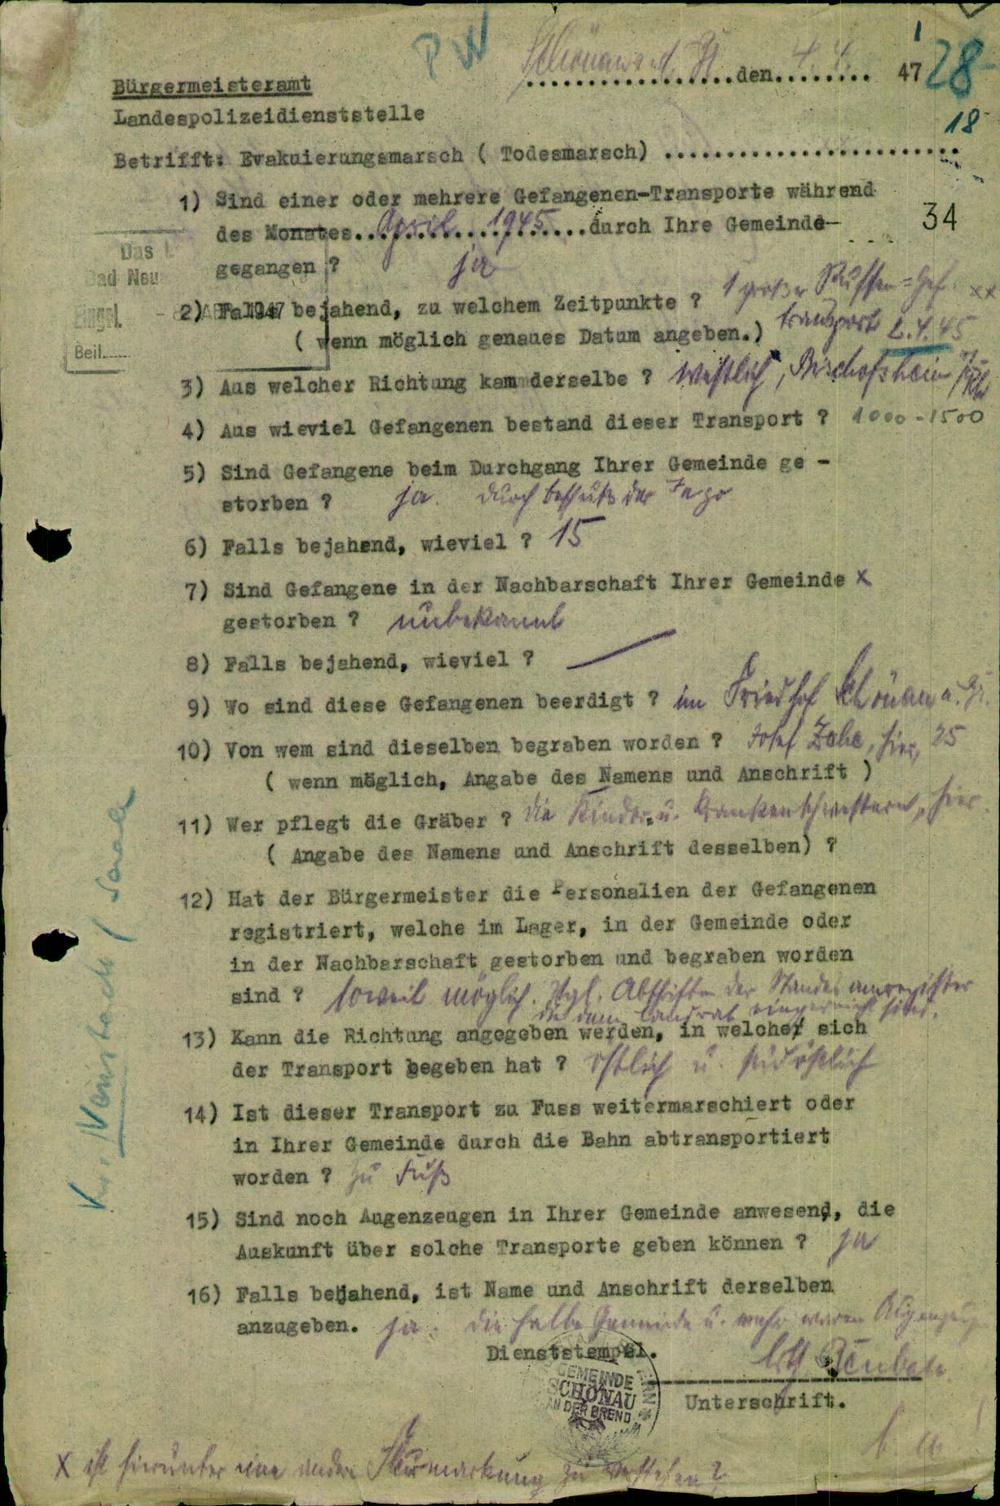 PW
Schönau a. d. Br. den 4.4. 47
28
18
Bürgermeisteramt
Landespolizeidienststelle
Betrifft: Evakuierungsmarsch ( Todesmarsch) ........................
34
1) Sind einer oder mehrere Gefangenen-Transporte während
des Monates...April 1945...durch Ihre Gemeinde-
gegangen ? ja
Das L
Bad Neu
Eingel. - 8. APR. 1947
Beil......
2) Falls bejahend, zu welchem Zeitpunkte ? 1 großer Russen=Gef. xx
( wenn möglich genaues Datum angeben.) transport 2.4.45
3) Aus welcher Richtung kam derselbe ? westlich, Bischofsheim
4) Aus wieviel Gefangenen bestand dieser Transport ? 1000-1500
5) Sind Gefangene beim Durchgang Ihrer Gemeinde ge -
storben ? ja. durch Beschuß der Jabo
6) Falls bejahend, wieviel ? 15
7) Sind Gefangene in der Nachbarschaft Ihrer Gemeinde x
gestorben ? unbekannt
8) Falls bejahend, wieviel ? —
9) Wo sind diese Gefangenen beerdigt ? im Friedhof Schönau a. Br.
10) Von wem sind dieselben begraben worden ? Josef Zehe, hier, 25
( wenn möglich, Angabe des Namens und Anschrift )
11) Wer pflegt die Gräber ? die Kinder- u. Krankenschwestern, hier.
( Angabe des Namens und Anschrift desselben) ?
12) Hat der Bürgermeister die Personalien der Gefangenen
registriert, welche im Lager, in der Gemeinde oder
in der Nachbarschaft gestorben und begraben worden
sind ? soweit möglich. Vgl. Abschriften der Standesamtsregister
die dem Landrat eingereicht sind.
13) Kann die Richtung angegeben werden, in welcher sich
der Transport begeben hat ? östlich u. südöstlich
14) Ist dieser Transport zu Fuss weitermarschiert oder
in Ihrer Gemeinde durch die Bahn abtransportiert
worden ? zu Fuß
15) Sind noch Augenzeugen in Ihrer Gemeinde anwesend, die
Auskunft über solche Transporte geben können ? ja
16) Falls bejahend, ist Name und Anschrift derselben
anzugeben. ja. die halbe Gemeinde u. mehr waren Augenzeugen
Dienststempel.
GEMEINDE
SCHÖNAU
AN DER BREND
Unterschrift.
x ist hierunter eine andere Flurmarkung zu verstehen?